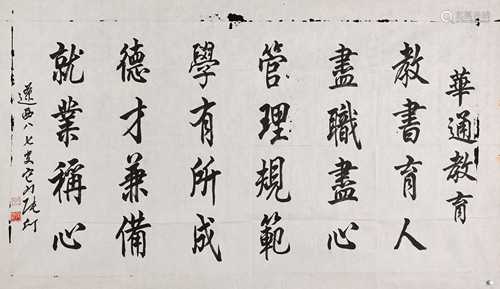 華通教育
教書育人
盡職盡心
管理規範
學有所成
德才兼備
就業稱心
遼西八七叟